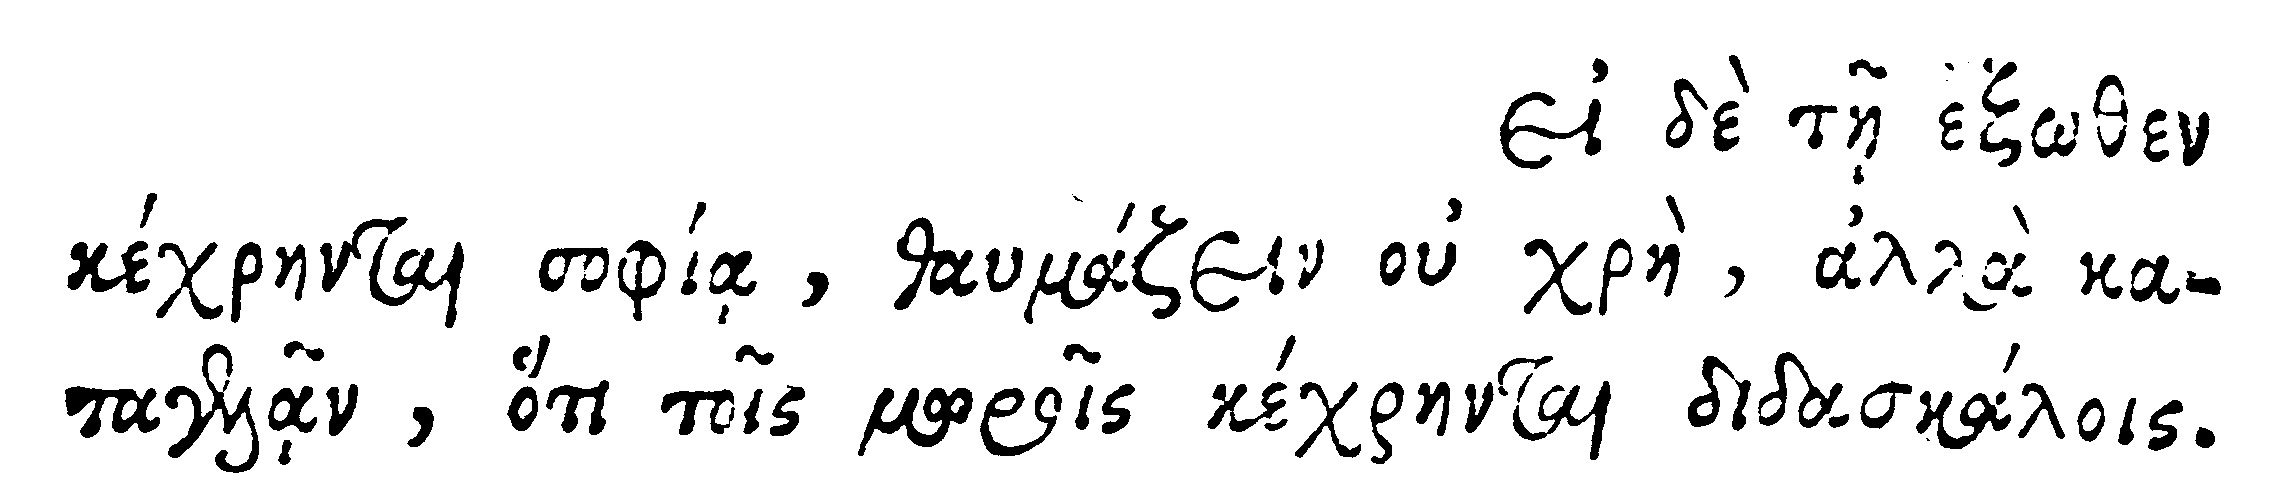 εἰ δὲ τῇ ἔξωθεν
κέχρηνται σοφίᾳ, θαυμάζειν οὐ χρὴ, ἀλλὰ κα-
ταγελᾷν, ὅτι τοῖς μωροῖς κέχρηνται διδασκάλοις.